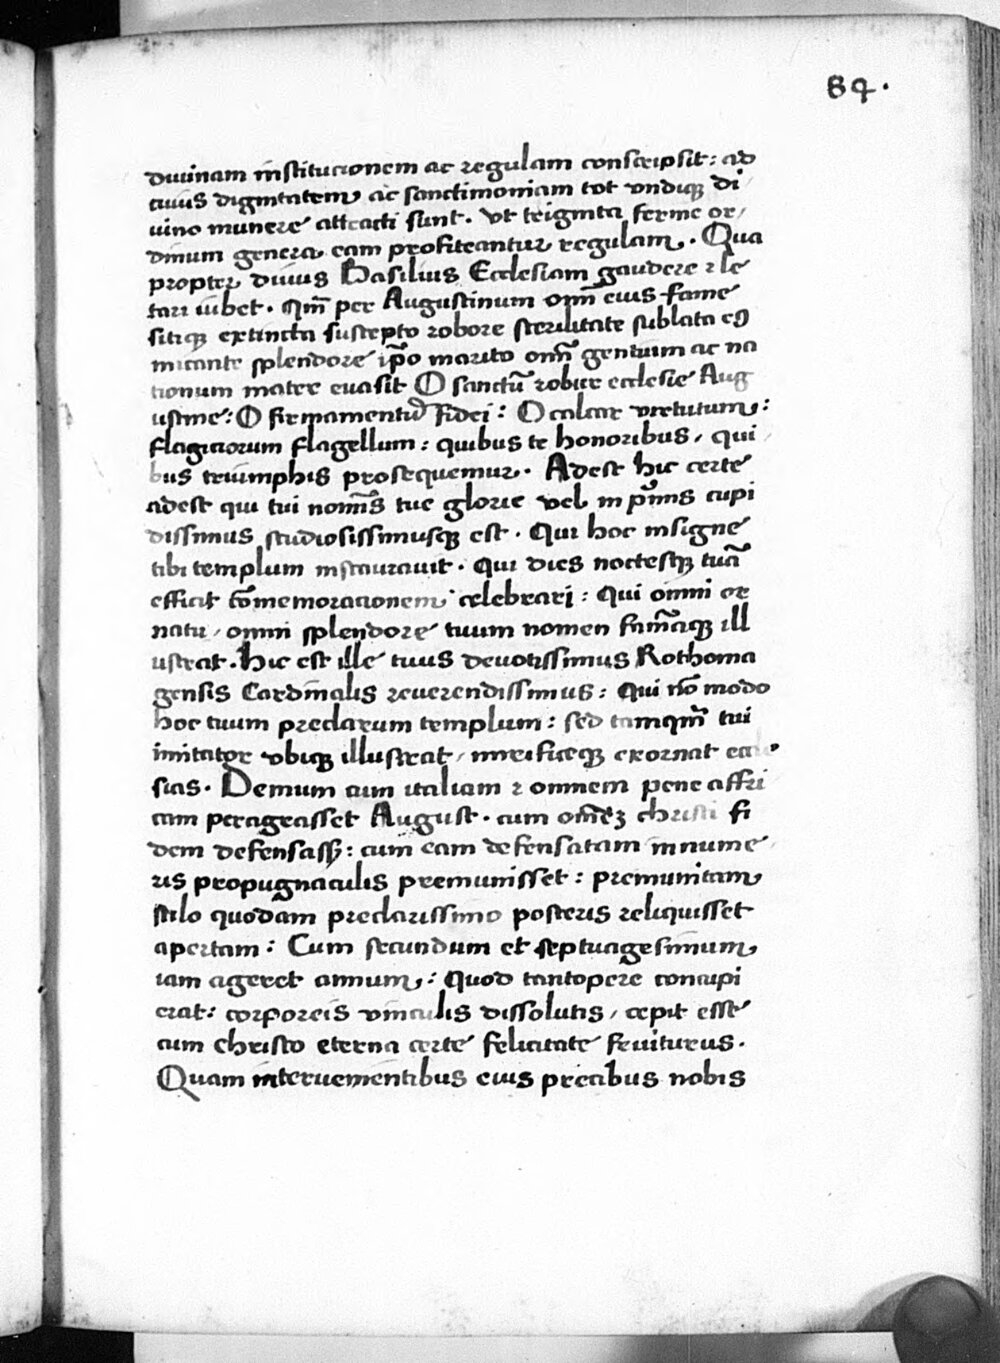 84.
diuinam institucionem ac regulam conscripsit: ad
cuius dignitatem ac sanctimoniam tot vndiqꝫ di
uino munere attracti sunt. Vt triginta ferme or
dinum genera eam profiteantur regulam. Qua
propter diuus Basilius Ecclesiam gaudere ⁊ le
tari iubet. qm̄ per Augustinum om̄i eius fame
sitiqꝫ extincta suscepto robore sterilitate sublata eꝯ
micante splendore ip̄o marito om̄i gentium ac na
tionum mater euasit O sanctū robur ecclesie Aug
ustine: O firmamentū fidei: O calcar virtutum:
flagiciorum flagellum: quibus te honoribus, qui
bus triumphis prosequemur. Adest hic certe
adest qui tui nom̄s tue glorie vel in pͥmis cupi
dissimus studiosissimusqꝫ est. Qui hoc insigne
tibi templum instaurauit. Qui dies noctesqꝫ tuā
efficit cōmemoracionem celebrari: Qui omni or
natu, omni splendore tuum nomen famāqꝫ ill
ustrat. hic est ille tuus deuotissimus Rothoma
gensis Cardinalis reuerendissimus: Qui nō modo
hoc tuum preclarum templum: sed tamqm̄ tui
imitator vbiqꝫ illustrat, mirificeqꝫ exornat eccle
sias. Demum cum italiam ⁊ omnem pene affri
cam peragrasset August. cum om̄eꝫ christi fi
dem defensassꝫ: cum eam defensatam innume
ris propugnaculis premunisset: premunitam
stilo quodam preclarissimo posteris reliquisset
apertam: Cum secundum et septuagesimum
iam ageret annum: Quod tantopere concupi
erat: corporeis vinculis dissolutis, cepit esse
cum christo eterna certe felicitate fruiturus.
Quam interuenientibus eius precibus nobis